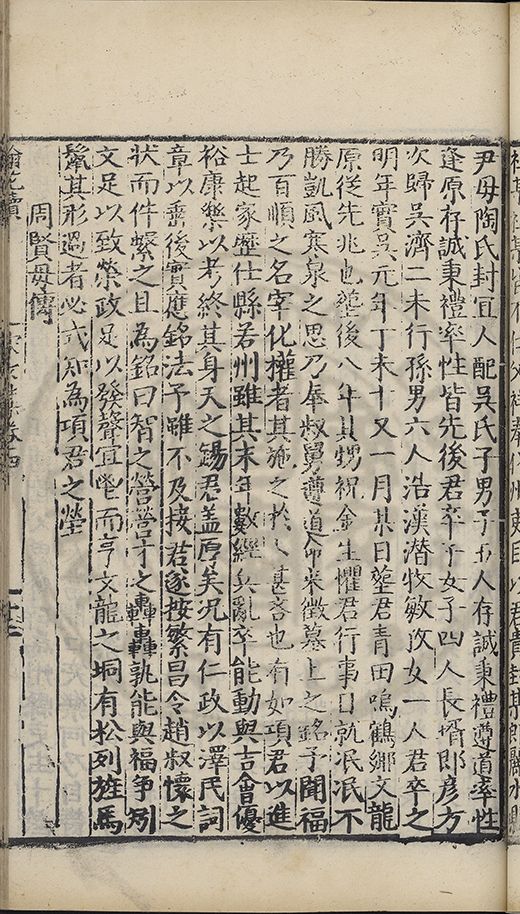 尹母陶氏封宜人配吳氏子男子五人存誠秉禮遵道率性
逢原存誠秉禮率性皆先後君卒子女子四人長壻郎彥方
次歸吳濟二未行孫男六人浩漢潛牧敏攷女一人君卒之
明年實吳元年丁未十又一月某日塟君青田鳴鶴鄉文龍
原從先兆也塟後八年其甥祝金生懼君行事日就泯泯不
勝凱風寒泉之思乃奉叔舅遵道命來徵墓上之銘予聞福
乃百順之名宰化權者其施之於人甚吝也有如項君以進
士起家歷仕縣若州雖其末年數經兵亂卒能動與吉會優
裕康樂以考終其身天之錫君蓋厚矣况有仁政以澤民詞
章以垂後實應銘法予雖不及接君遂按繁昌令趙叔懷之
狀而件繫之且為銘曰智之營營才之轟轟孰能與福争矧
文足以致榮政足以發聲宜壐而亨文龍之垌有松列旌馬
鬣其形過者必式知為項君之塋
周賢母傳